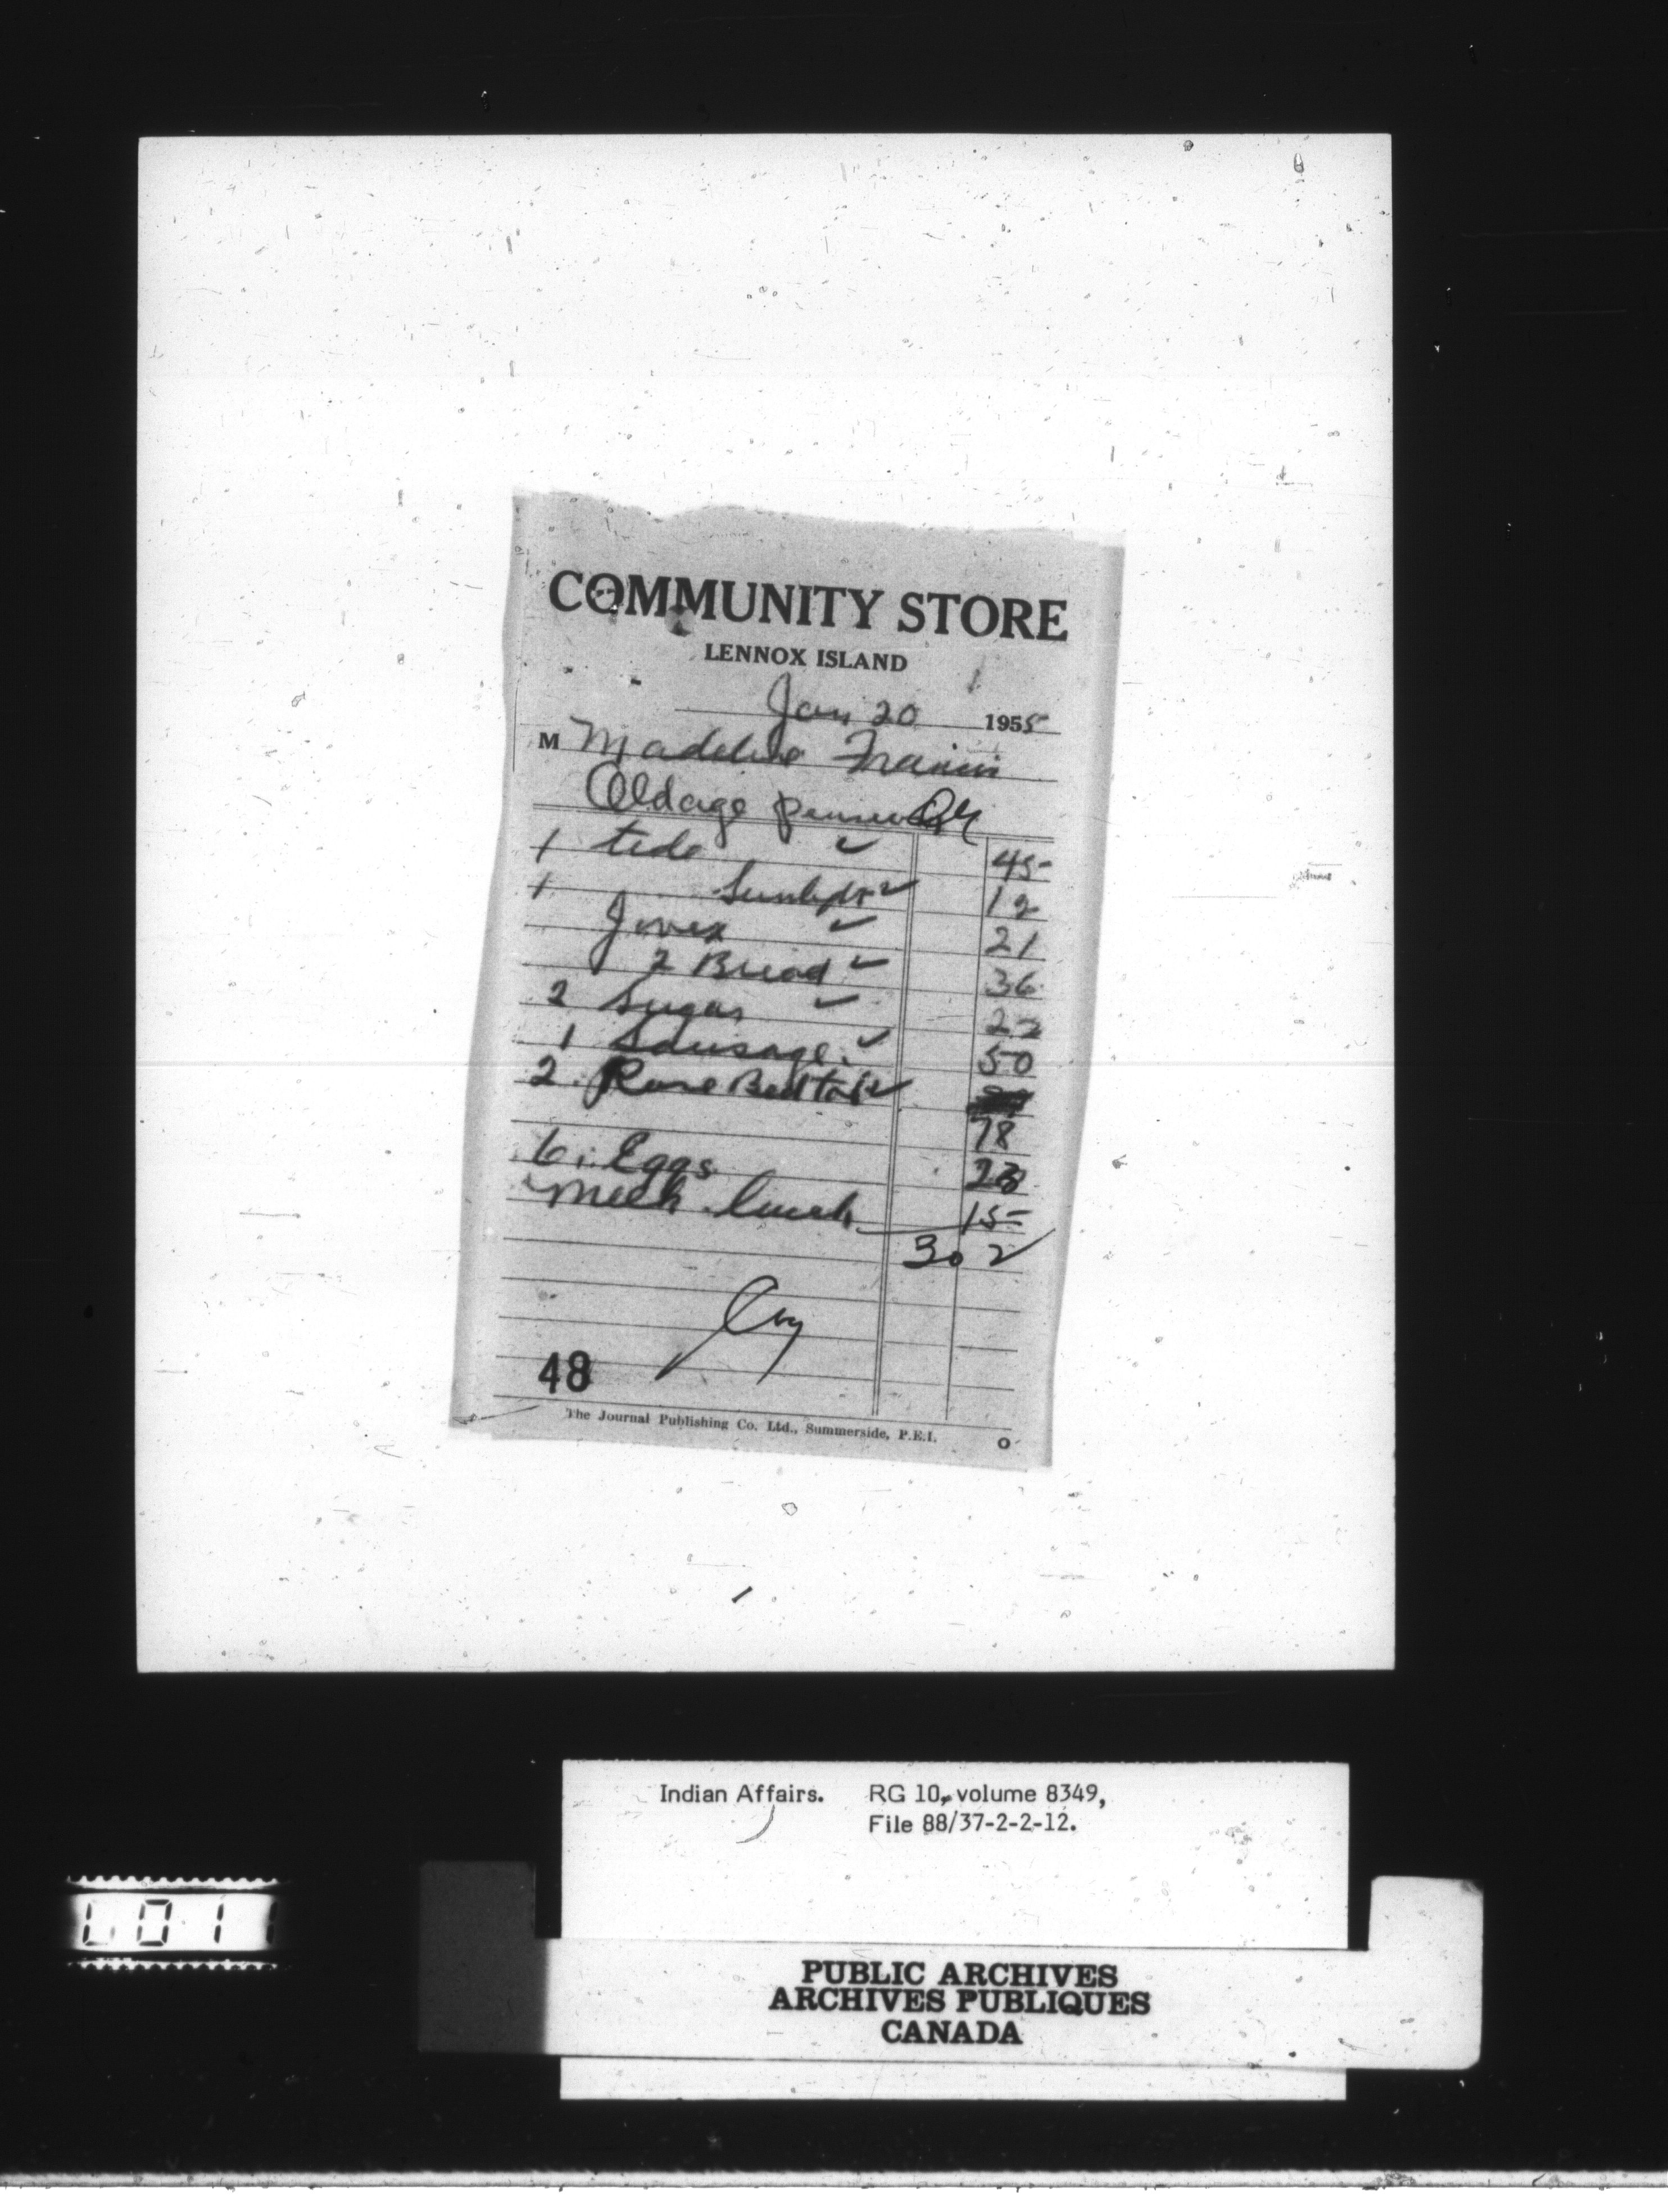 COMMUNITY STORE
LENNOX ISLAND
Jan 20 1955
M Madeline Francis
Oldage pension
1 tide ✓ 45
1 Sunlight ✓ 12
Javex ✓ 21
2 Bread ✓ 36
2 Sugar ✓ 22
1 Sausage ✓ 50
2 Rose Bed ✓
78
6 Eggs 23
meek lunch 15
3 02
48
The Journal Publishing Co. Ltd., Summerside, P.E.I.
Indian Affairs. RG 10, volume 8349,
File 88/37-2-2-12.
PUBLIC ARCHIVES
ARCHIVES PUBLIQUES
CANADA